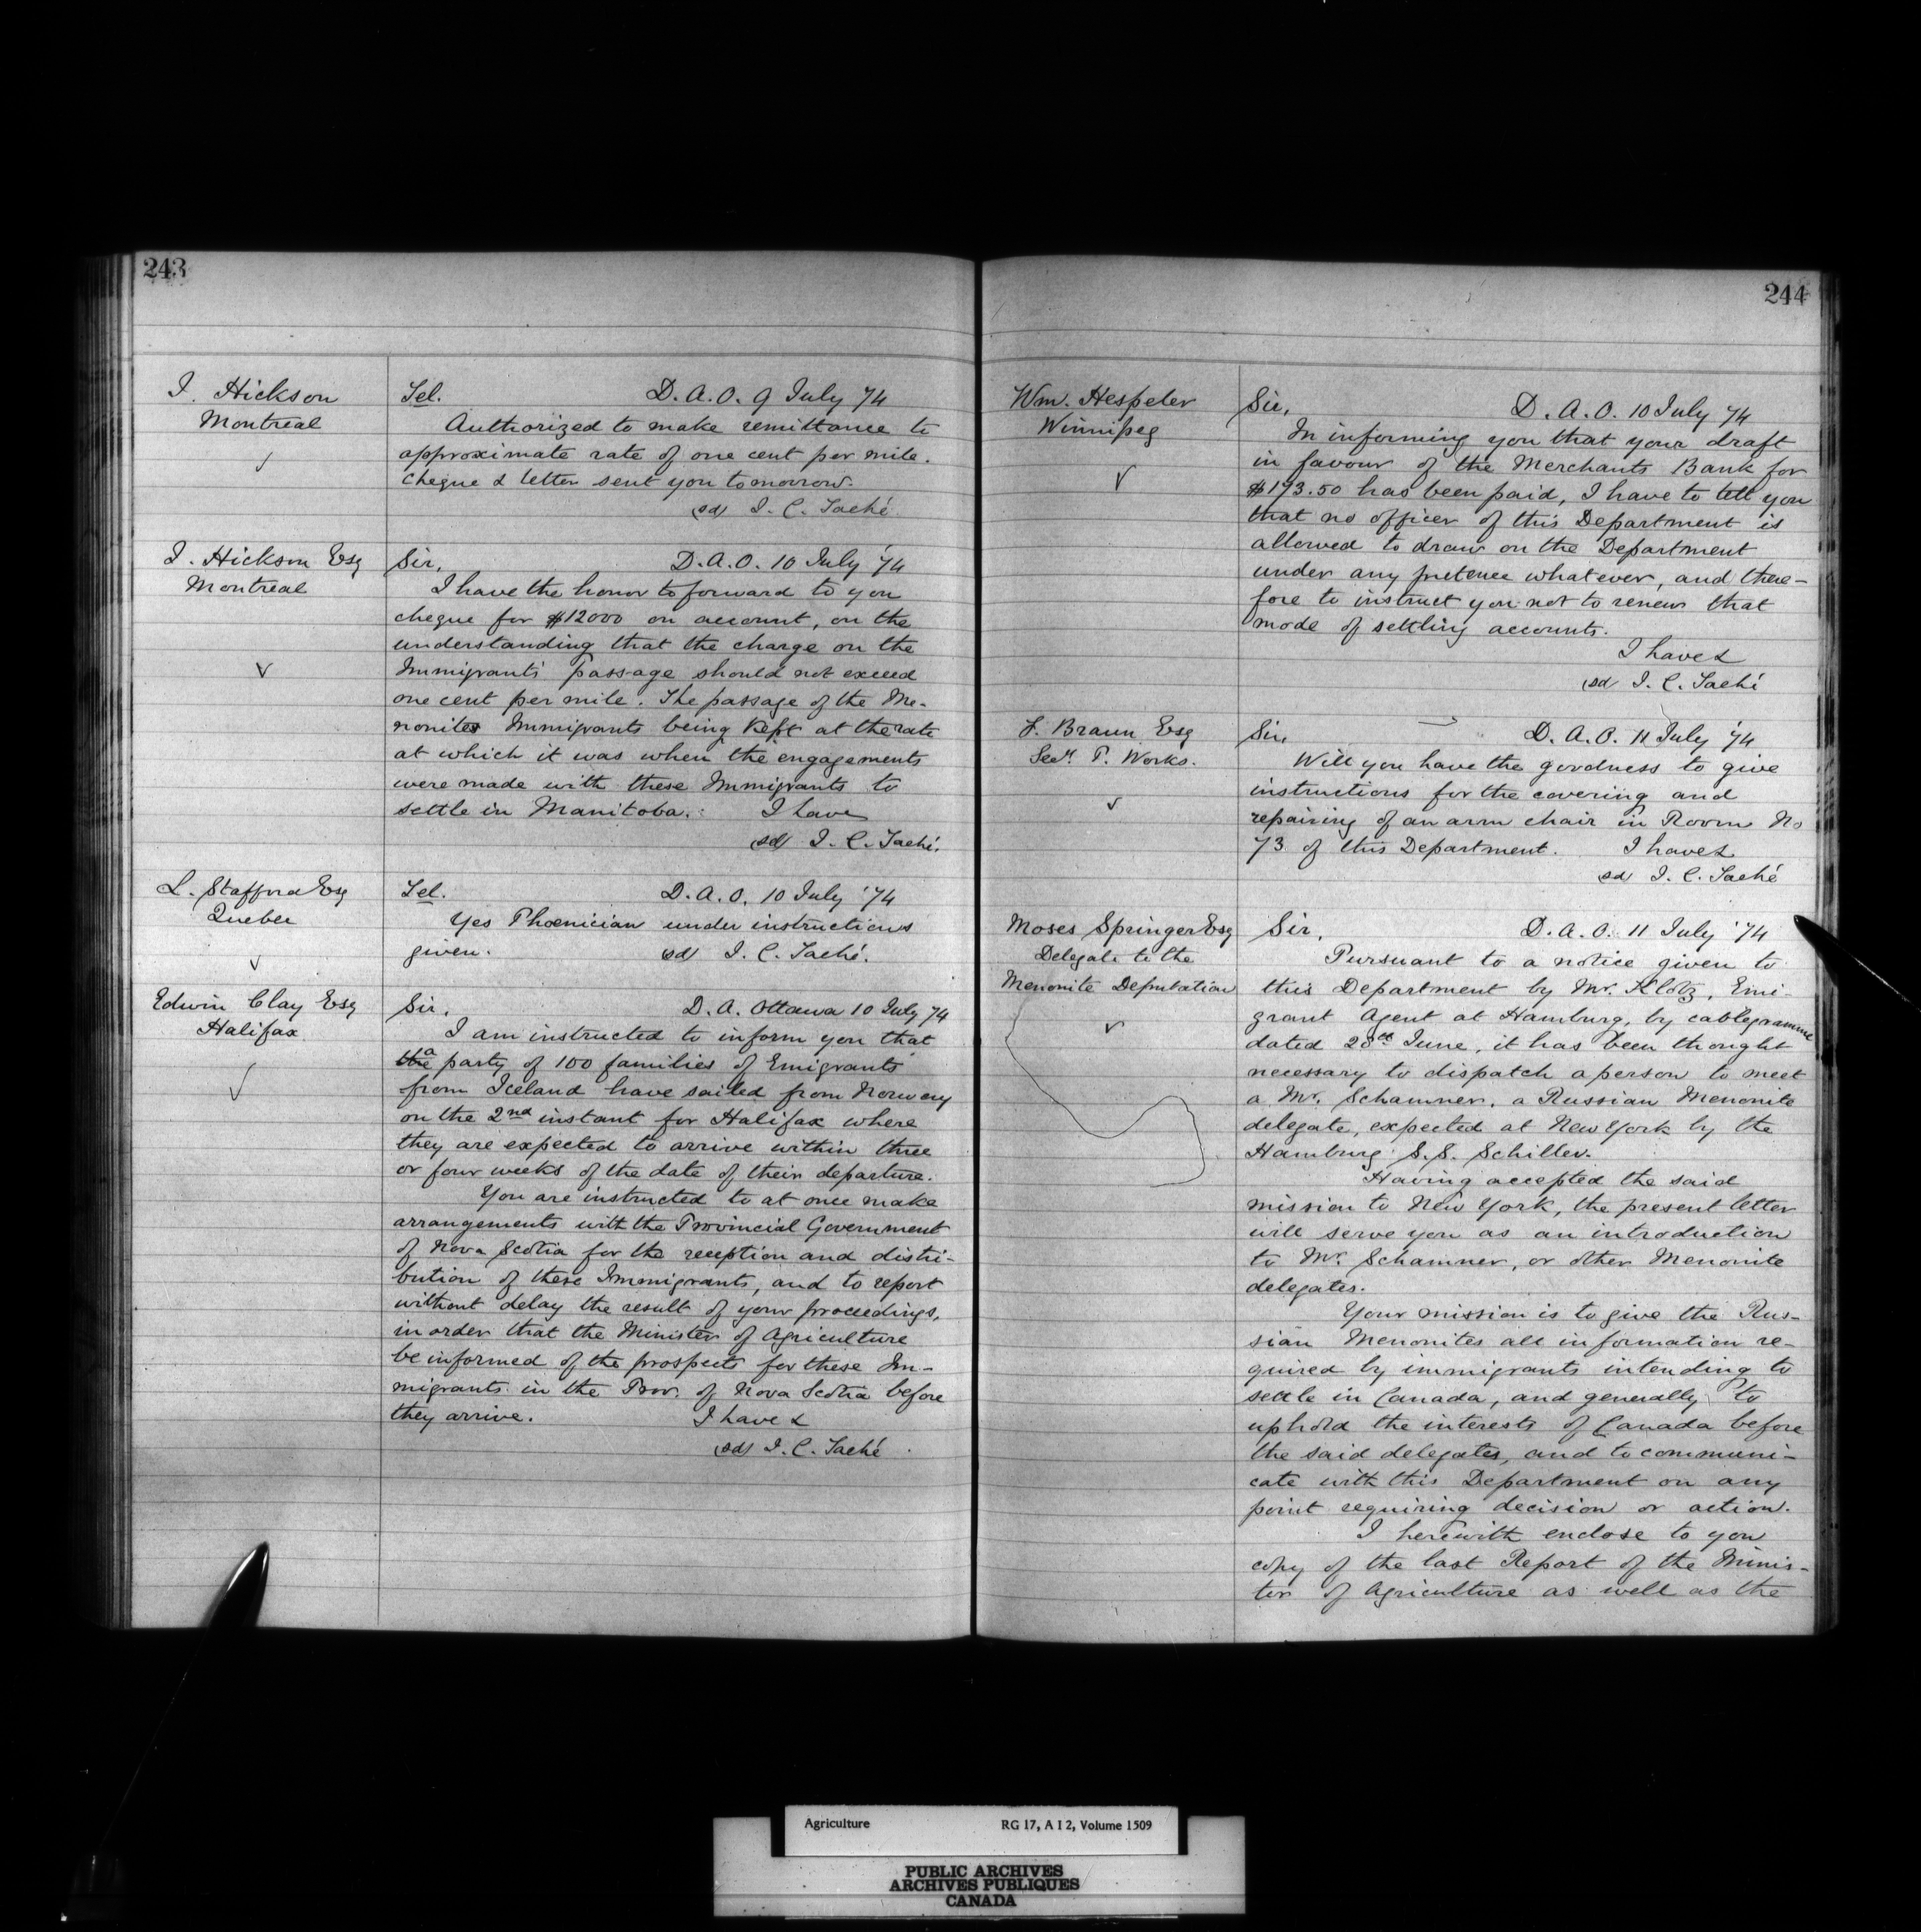 243
I. Hickson
Montreal
Tel. D. A. O. 9 July '74
Authorized to make remittance to
approximate rate of one cent per mile.
Cheque & letter sent you tomorrow.
(sd) J. C. Taché
I. Hickson Esq
Montreal
Sir, D. A. O. 10 July '74
I have the honor to forward to you
cheque for $12000 on account, on the
understanding that the charge on the
Immigrants' passage should not exceed
one cent per mile. The passage of the Me-
nonites Immigrants being kept at the rate
at which it was when the engagements
were made with these Immigrants to
settle in Manitoba. I have
(sd) J. C. Taché.
L. Stafford Esq
Quebec
Tel. D. A. O. 10 July '74
Yes Phoenician under instructions
given. (sd) J. C. Taché.
Edwin Clay Esq
Halifax
Sir, D. A. Ottawa 10 July 74
I am instructed to inform you that
the a party of 100 families of Emigrants
from Iceland have sailed from Norway
on the 2nd instant for Halifax where
they are expected to arrive within three
or four weeks of the date of their departure.
You are instructed to at once make
arrangements with the Provincial Government
of Nova Scotia for the reception and distri-
bution of these Immigrants, and to report
without delay the result of your proceedings,
in order that the Minister of Agriculture
be informed of the prospects for these Im-
migrants in the Prov. of Nova Scotia before
they arrive. I have &
(sd) J. C. Taché
244
Wm. Hespeler
Winnipeg
Sir, D. A. O. 10 July '74
In informing you that your draft
in favour of the Merchants Bank for
$173.50 has been paid, I have to tell you
that no officer of this Department is
allowed to draw on the Department
under any pretence whatever, and there-
fore to instruct you not to renew that
mode of settling accounts.
I have &
(sd) J. C. Taché
F. Braun Esq
Secy. P. Works.
Sir, D. A. O. 11 July '74
Will you have the goodness to give
instructions for the covering and
repairing of an arm chair in Room No
73 of this Department. I have &
(sd) J. C. Taché
Moses Springer Esq
Delegate to the
Menonite Deputation
Sir, D. A. O. 11 July '74
Pursuant to a notice given to
this Department by Mr. Klotz, Emi-
grant Agent at Hamburg, by cablegramme
dated 28th June, it has been thought
necessary to dispatch a person to meet
a Mr. Schamner, a Russian Menonite
delegate, expected at New York by the
Hamburg S.S. Schiller.
Having accepted the said
mission to New York, the present letter
will serve you as an introduction
to Mr. Schamner, or other Menonite
delegates.
Your mission is to give the Rus-
sian Menonites all information re-
quired by immigrants intending to
settle in Canada, and generally to
uphold the interests of Canada before
the said delegates, and to communi-
cate with this Department on any
point requiring decision or action.
I herewith enclose to you
copy of the last Report of the Minis-
ter of Agriculture as well as the
Agriculture RG 17, A I 2, Volume 1509
PUBLIC ARCHIVES
ARCHIVES PUBLIQUES
CANADA